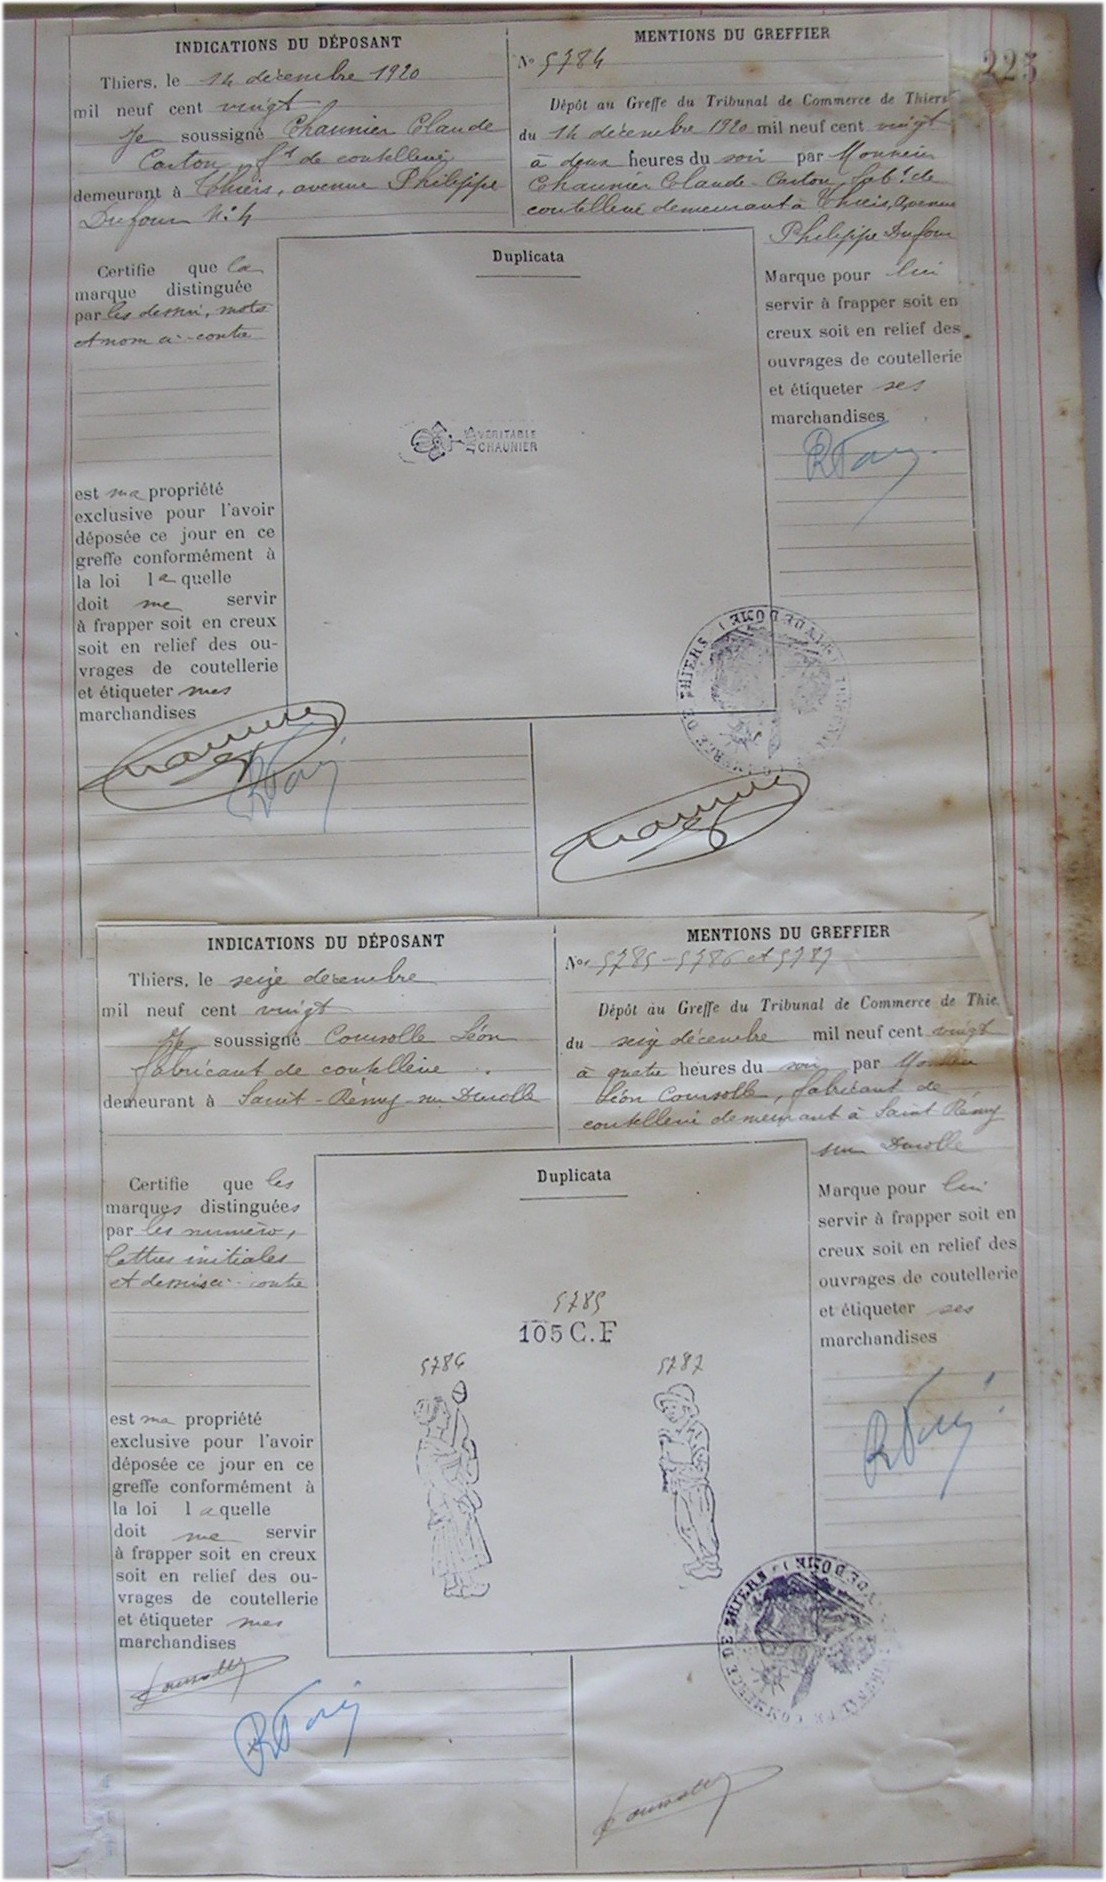 223
INDICATIONS DU DÉPOSANT
Thiers, le 14 décembre 1920
mil neuf cent vingt
Je soussigné Chaunier Claude
Carton, ft de coutellerie
demeurant à Thiers, avenue Philippe
Dufour No 4
Certifie que la
marque distinguée
par les dessin, mots
et nom ci-contre
est ma propriété
exclusive pour l'avoir
déposée ce jour en ce
greffe conformément à
la loi laquelle
doit me servir
à frapper soit en creux
soit en relief des ou-
vrages de coutellerie
et étiqueter mes
marchandises
MENTIONS DU GREFFIER
No 5784
Dépôt au Greffe du Tribunal de Commerce de Thiers
du 14 décembre 1920 mil neuf cent vingt
à deux heures du soir par Monsieur
Chaunier Claude-Carton, fabt de
coutellerie demeurant à Thiers, Avenue
Philippe Dufour
Duplicata
VÉRITABLE
CHAUNIER
Marque pour lui
servir à frapper soit en
creux soit en relief des
ouvrages de coutellerie
et étiqueter ses
marchandises
Chaunier
Chaunier
INDICATIONS DU DÉPOSANT
Thiers, le seize décembre
mil neuf cent vingt
Je soussigné Coursolle Léon
fabricant de coutellerie
demeurant à Saint-Rémy sur Durolle
Certifie que les
marques distinguées
par les numéro,
lettres initiales
et dessins ci-contre
est ma propriété
exclusive pour l'avoir
déposée ce jour en ce
greffe conformément à
la loi laquelle
doit me servir
à frapper soit en creux
soit en relief des ou-
vrages de coutellerie
et étiqueter mes
marchandises
Coursolle
MENTIONS DU GREFFIER
Nos 5785-5786 et 5787
Dépôt au Greffe du Tribunal de Commerce de Thie
du seize décembre mil neuf cent vingt
à quatre heures du soir par Monsieur
Léon Coursolle, fabricant de
coutellerie demeurant à Saint Rémy
sur Durolle
Duplicata
5785
105 C.F
5786 5787
Marque pour lui
servir à frapper soit en
creux soit en relief des
ouvrages de coutellerie
et étiqueter ses
marchandises
COMMERCE DE THIERS
Coursolle